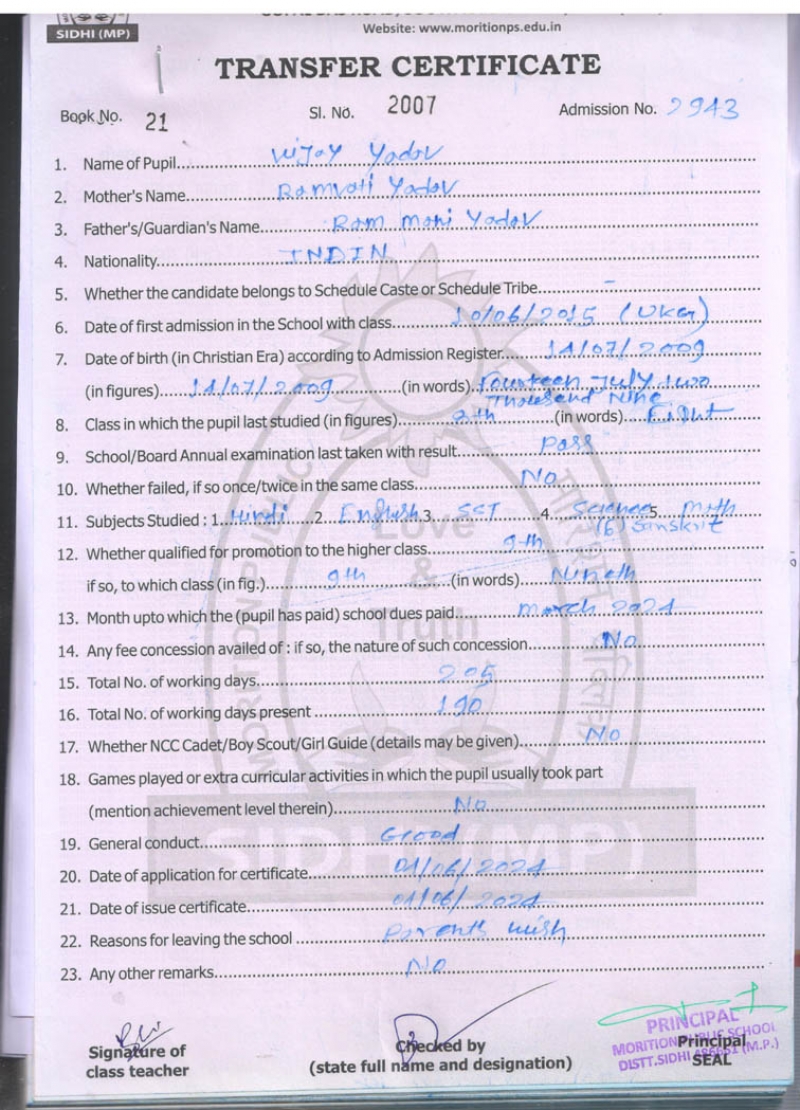 SIDHI (MP)
Website: www.moritionps.edu.in
TRANSFER CERTIFICATE
Book No. 21 Sl. No. 2007 Admission No. 2943
1. Name of Pupil Vijay Yadav
2. Mother's Name Ramvati Yadav
3. Father's/Guardian's Name Ram mani Yadav
4. Nationality INDIN
5. Whether the candidate belongs to Schedule Caste or Schedule Tribe -
6. Date of first admission in the School with class 10/06/2015 (UKG)
7. Date of birth (in Christian Era) according to Admission Register 14/07/2009
(in figures) 14/07/2009 (in words) Fourteen July Two
Thousand Nine
8. Class in which the pupil last studied (in figures) 8th (in words) Eight
9. School/Board Annual examination last taken with result Pass
10. Whether failed, if so once/twice in the same class No
11. Subjects Studied : 1 Hindi 2 English 3 SST 4 Science 5 Math
(6) Sanskrit
12. Whether qualified for promotion to the higher class 9th
if so, to which class (in fig.) 9th (in words)
13. Month upto which the (pupil has paid) school dues paid march 2024
14. Any fee concession availed of : if so, the nature of such concession No
15. Total No. of working days 205
16. Total No. of working days present 190
17. Whether NCC Cadet/Boy Scout/Girl Guide (details may be given) No
18. Games played or extra curricular activities in which the pupil usually took part
(mention achievement level therein) No
19. General conduct Good
20. Date of application for certificate 01/06/2024
21. Date of issue certificate 01/06/2024
22. Reasons for leaving the school Parents wish
23. Any other remarks No
Love
&
Truth
MORITION PUBLIC
SIDHI (MP)
Signature of
class teacher
Checked by
(state full name and designation)
PRINCIPAL
MORITION PUBLIC SCHOOL
DISTT.SIDHI (M.P.)
Principal
SEAL